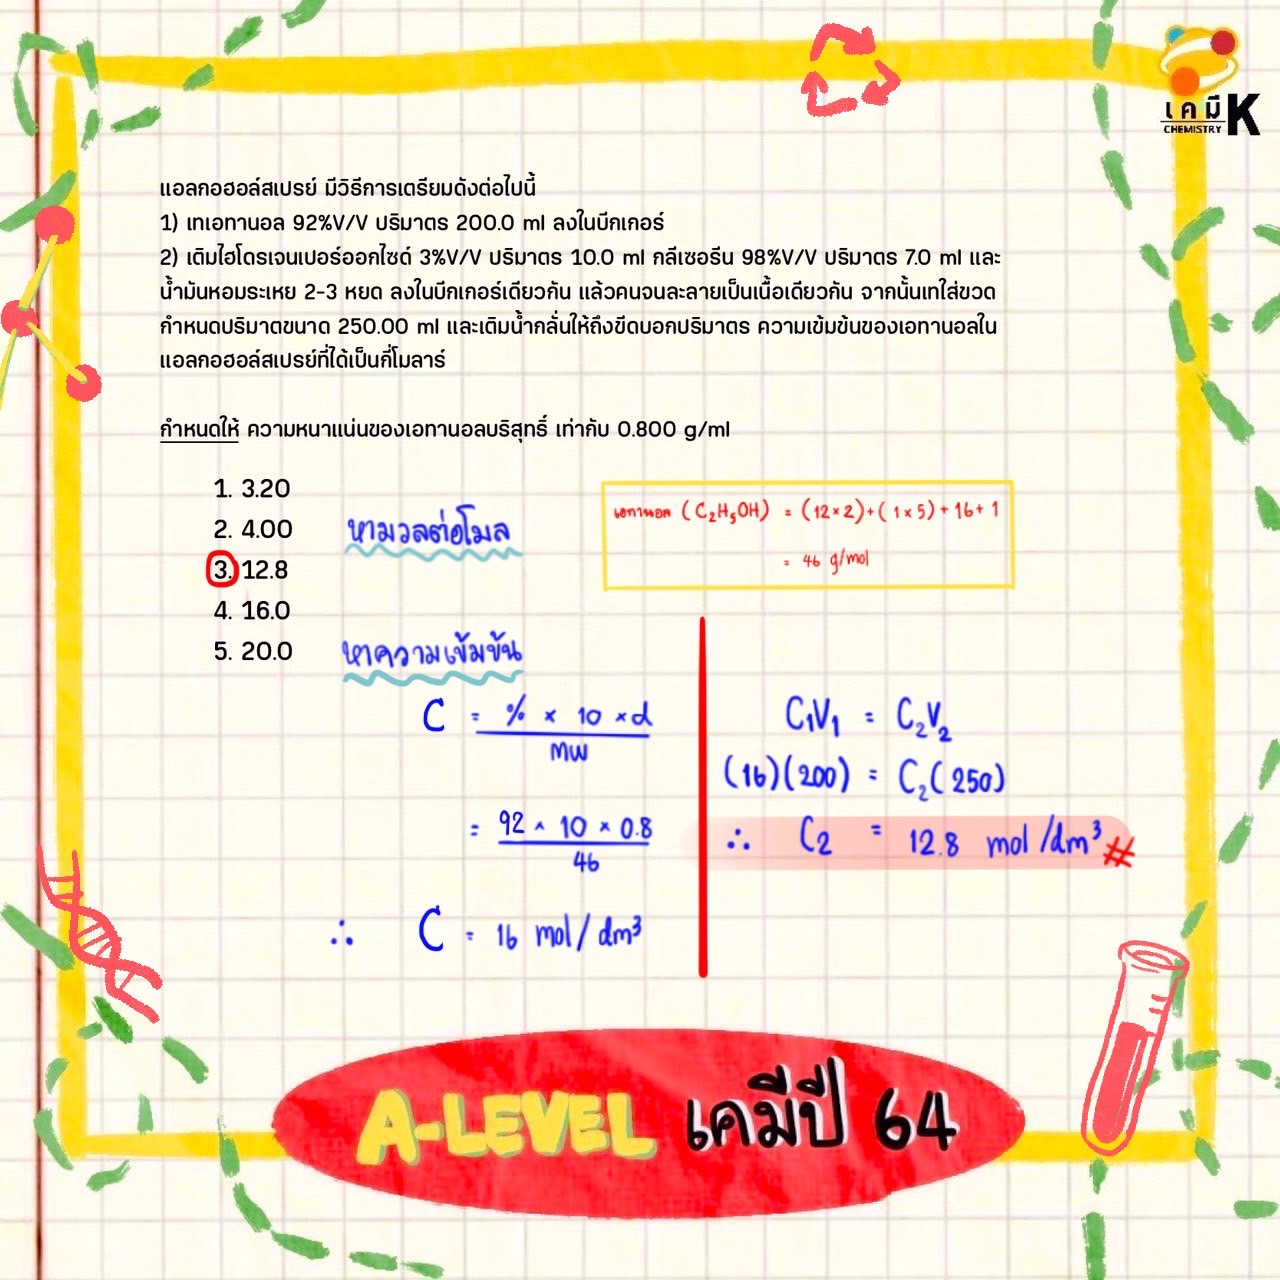 เคมี K
CHEMISTRY
แอลกอฮอล์สเปรย์ มีวิธีการเตรียมดังต่อไปนี้
1) เทเอทานอล 92%V/V ปริมาตร 200.0 ml ลงในบีกเกอร์
2) เติมไฮโดรเจนเปอร์ออกไซด์ 3%V/V ปริมาตร 10.0 ml กลีเซอรีน 98%V/V ปริมาตร 7.0 ml และ
น้ำมันหอมระเหย 2-3 หยด ลงในบีกเกอร์เดียวกัน แล้วคนจนละลายเป็นเนื้อเดียวกัน จากนั้นเทใส่ขวด
กำหนดปริมาตขนาด 250.00 ml และเติมน้ำกลั่นให้ถึงขีดบอกปริมาตร ความเข้มข้นของเอทานอลใน
แอลกอฮอล์สเปรย์ที่ได้เป็นกี่โมลาร์
กำหนดให้ ความหนาแน่นของเอทานอลบริสุทธิ์ เท่ากับ 0.800 g/ml
1. 3.20
2. 4.00
3. 12.8
4. 16.0
5. 20.0
หามวลต่อโมล
เอทานอล (C₂H₅OH) = (12×2)+(1×5)+16+1
= 46 g/mol
หาความเข้มข้น
C = % × 10 × d
MW
= 92 × 10 × 0.8
46
∴ C = 16 mol/dm³
C₁V₁ = C₂V₂
(16)(200) = C₂(250)
∴ C₂ = 12.8 mol/dm³ #
A-LEVEL เคมีปี 64